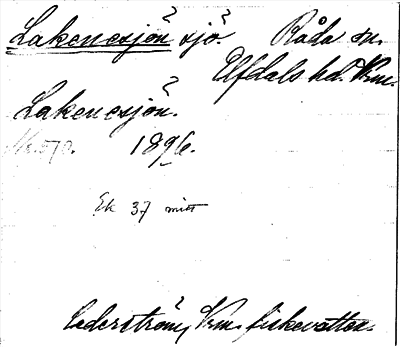 Lakenesjön sjö. Råda sn.
Elfdals hd. Vrm.
Lakenesjön.
No. 570. 1896.
Ek 37 mitt
Cederström, Vrm. fiskevatten.